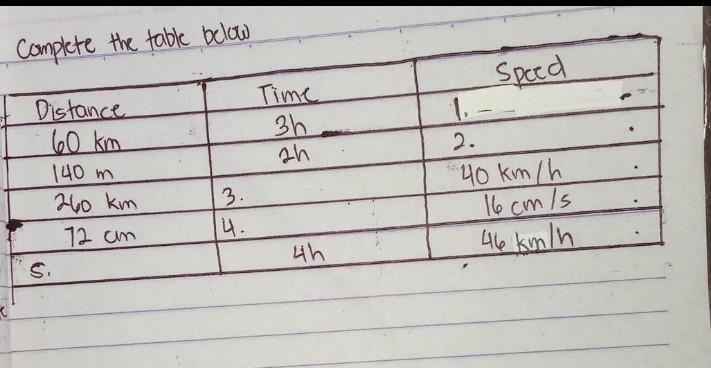 Complete the table below
Distance Time Speed
60 km 3h 1.
140 m 2h 2.
260 km 3. 40 km/h
72 cm 4. 16 cm/s
5. 4h 46 km/h